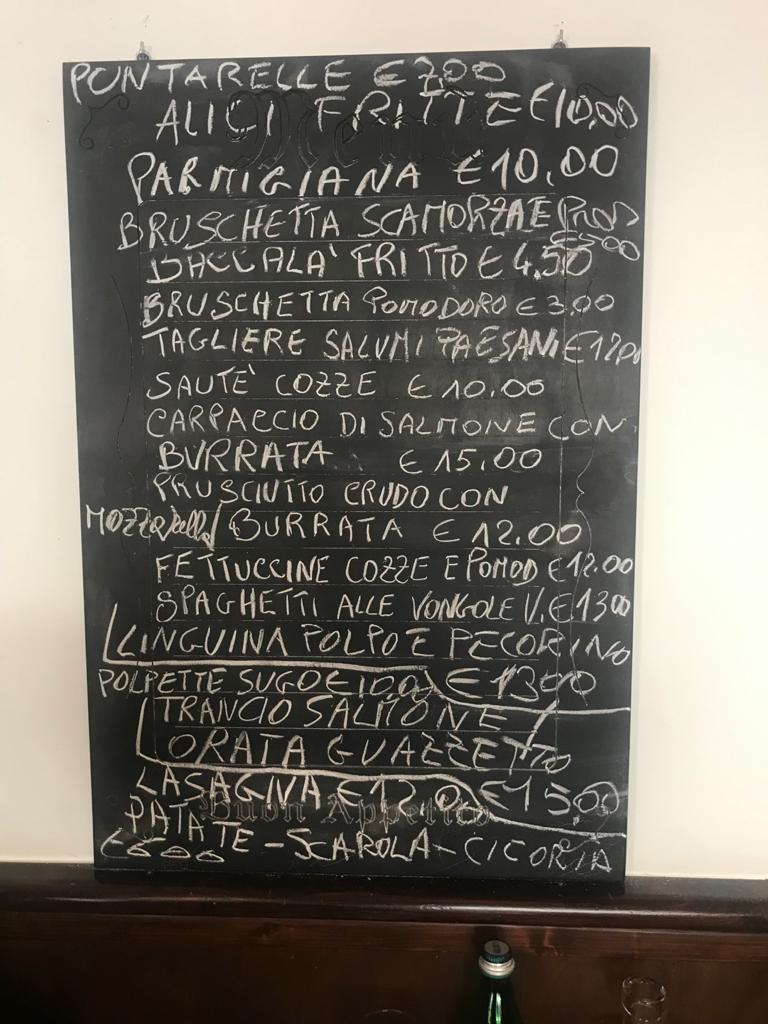 PUNTARELLE € 7,00
ALICI FRITTE €10,00
Menu
PARMIGIANA €10,00
BRUSCHETTA SCAMORZA E PROD
€500
BACCALA' FRITTO € 4,50
BRUSCHETTA POMODORO € 3.00
TAGLIERE SALUMI PAESANI € 12,00
SAUTE' COZZE € 10.00
CARPACCIO DI SALMONE CON
BURRATA € 15.00
PRUSCIUTTO CRUDO CON
MOZZARella/BURRATA € 12.00
FETTUCCINE COZZE E POMOD €12.00
SPAGHETTI ALLE VONGOLE V. € 1300
LINGUINA POLPO E PECORINO
€1300
POLPETTE SUGO €1000
TRANCIO SALMONE /
ORATA GUAZZETTO
€15,00
LASAGNA €12,0
Buon Appetito
PATATE - SCAROLA - CICORIA
€600